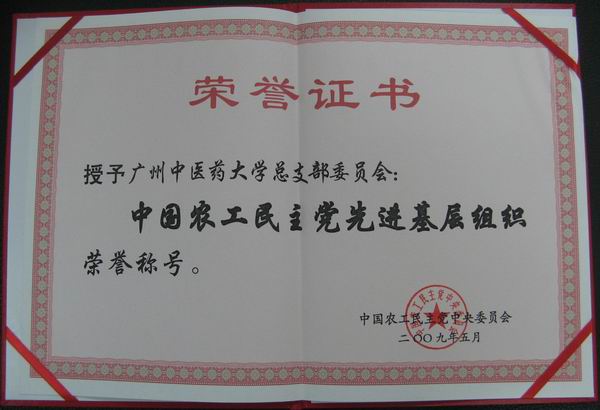 荣誉证书
授予广州中医药大学总支部委员会：
中国农工民主党先进基层组织
荣誉称号。
中国农工民主党中央委员会
二〇〇九年五月